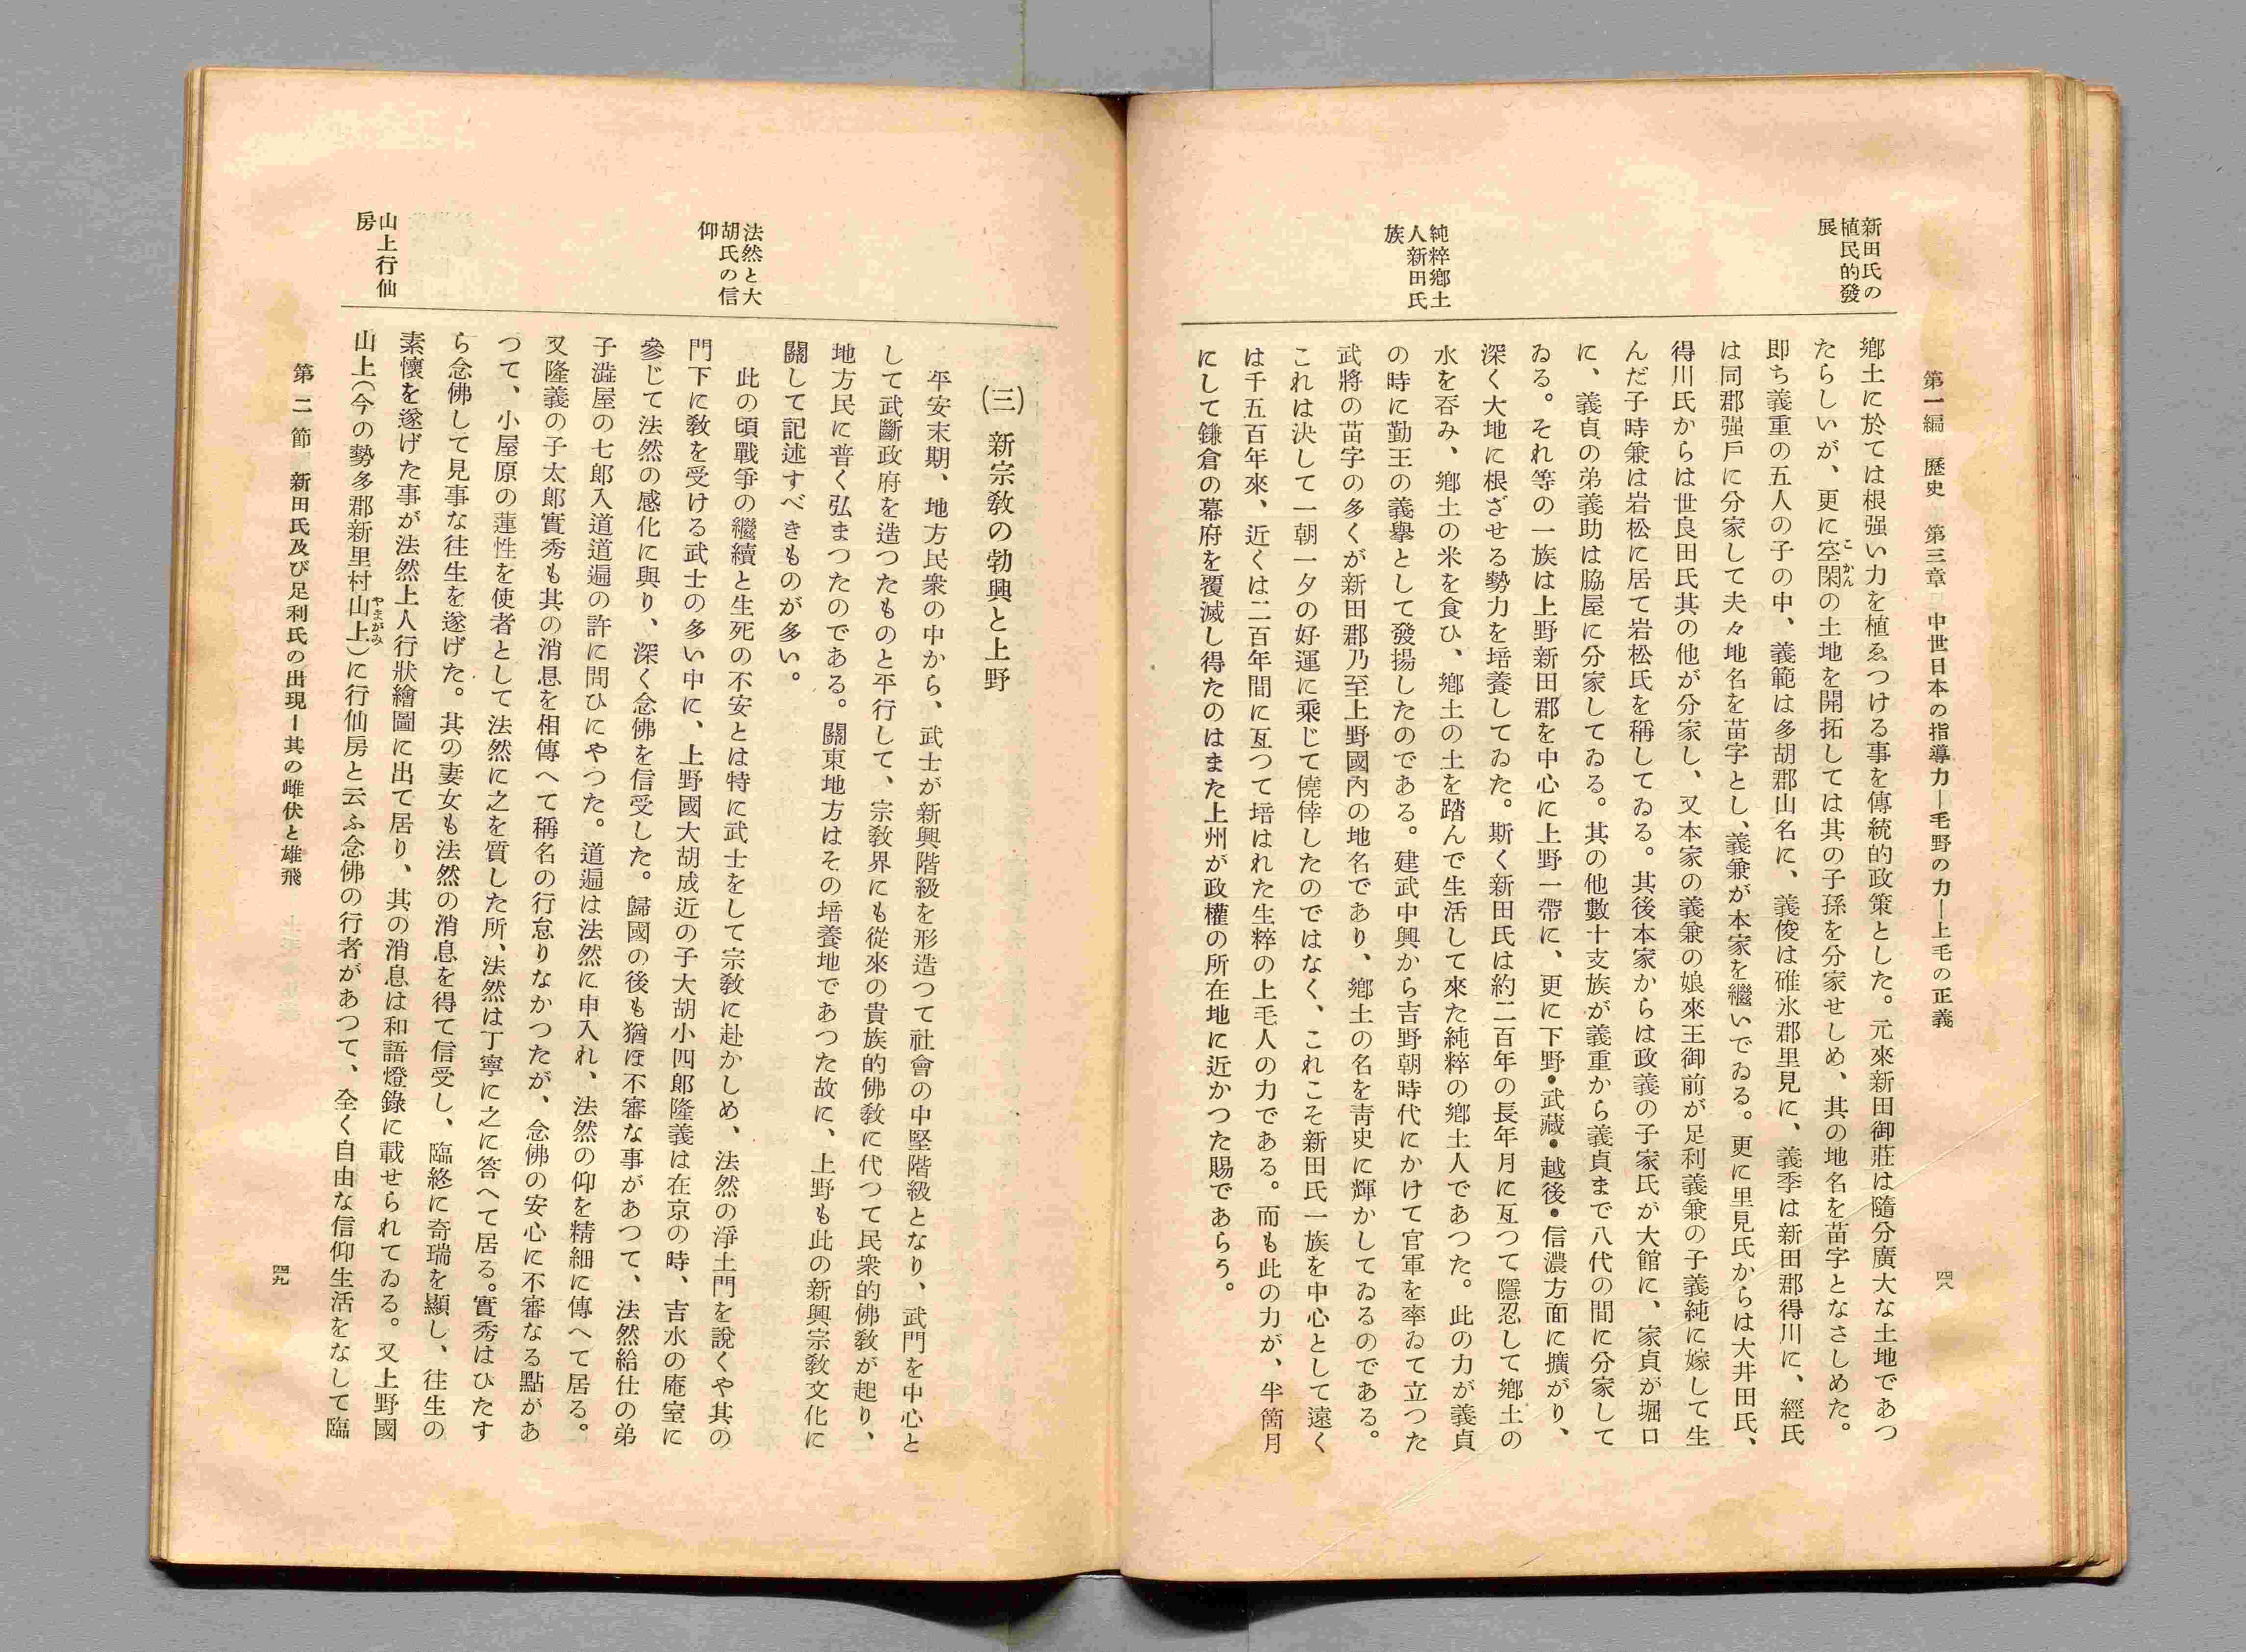 第一編　歷史　第三章　中世日本の指導力―毛野の力―上毛の正義
四八
新田氏の
植民的發
展
純粹鄕土
人新田氏
族
鄕土に於ては根强い力を植ゑつける事を傳統的政策とした。元來新田御莊は隨分廣大な土地であつ
たらしいが、更に空閑こかんの土地を開拓しては其の子孫を分家せしめ、其の地名を苗字となさしめた。
卽ち義重の五人の子の中、義範は多胡郡山名に、義俊は碓氷郡里見に、義季は新田郡得川に、經氏
は同郡强戶に分家して夫々地名を苗字とし、義兼が本家を繼いでゐる。更に里見氏からは大井田氏、
得川氏からは世良田氏其の他が分家し、又本家の義兼の娘來王御前が足利義兼の子義純に嫁して生
んだ子時兼は岩松に居て岩松氏を稱してゐる。其後本家からは政義の子家氏が大館に、家貞が堀口
に、義貞の弟義助は脇屋に分家してゐる。其の他數十支族が義重から義貞まで八代の間に分家して
ゐる。それ等の一族は上野新田郡を中心に上野一帶に、更に下野・武藏・越後・信濃方面に擴がり、
深く大地に根ざせる勢力を培養してゐた。斯く新田氏は約二百年の長年月に亙つて隱忍して鄕土の
水を呑み、鄕土の米を食ひ、鄕土の土を踏んで生活して來た純粹の鄕土人であつた。此の力が義貞
の時に勤王の義擧として發揚したのである。建武中興から吉野朝時代にかけて官軍を率ゐて立つた
武將の苗字の多くが新田郡乃至上野國內の地名であり、鄕土の名を靑史に輝かしてゐるのである。
これは決して一朝一夕の好運に乘じて僥倖したのではなく、これこそ新田氏一族を中心として遠く
は千五百年來、近くは二百年間に亙つて培はれた生粹の上毛人の力である。而も此の力が、半箇月
にして鎌倉の幕府を覆滅し得たのはまた上州が政權の所在地に近かつた賜であらう。
法然と大
胡氏の信
仰
山上行仙
房
㈢　新宗敎の勃興と上野
平安末期、地方民衆の中から、武士が新興階級を形造つて社會の中堅階級となり、武門を中心と
して武斷政府を造つたものと平行して、宗敎界にも從來の貴族的佛敎に代つて民衆的佛敎が起り、
地方民に普く弘まつたのである。關東地方はその培養地であつた故に、上野も此の新興宗敎文化に
關して記述すべきものが多い。
此の頃戰爭の繼續と生死の不安とは特に武士をして宗敎に赴かしめ、法然の淨土門を說くや其の
門下に敎を受ける武士の多い中に、上野國大胡成近の子大胡小四郞隆義は在京の時、吉水の庵室に
參じて法然の感化に與り、深く念佛を信受した。歸國の後も猶ほ不審な事があつて、法然給仕の弟
子澁屋の七郞入道道遍の許に問ひにやつた。道遍は法然に申入れ、法然の仰を精細に傳へて居る。
又隆義の子太郞實秀も其の消息を相傳へて稱名の行怠りなかつたが、念佛の安心に不審なる點があ
つて、小屋原の蓮性を使者として法然に之を質した所、法然は丁寧に之に答へて居る。實秀はひたす
ら念佛して見事な往生を遂げた。其の妻女も法然の消息を得て信受し、臨終に奇瑞を顯し、往生の
素懷を遂げた事が法然上人行狀繪圖に出て居り、其の消息は和語燈錄に載せられてゐる。又上野國
山上(今の勢多郡新里村山上やまがみ)に行仙房と云ふ念佛の行者があつて、全く自由な信仰生活をなして臨
第二節　新田氏及び足利氏の出現―其の雌伏と雄飛
四九